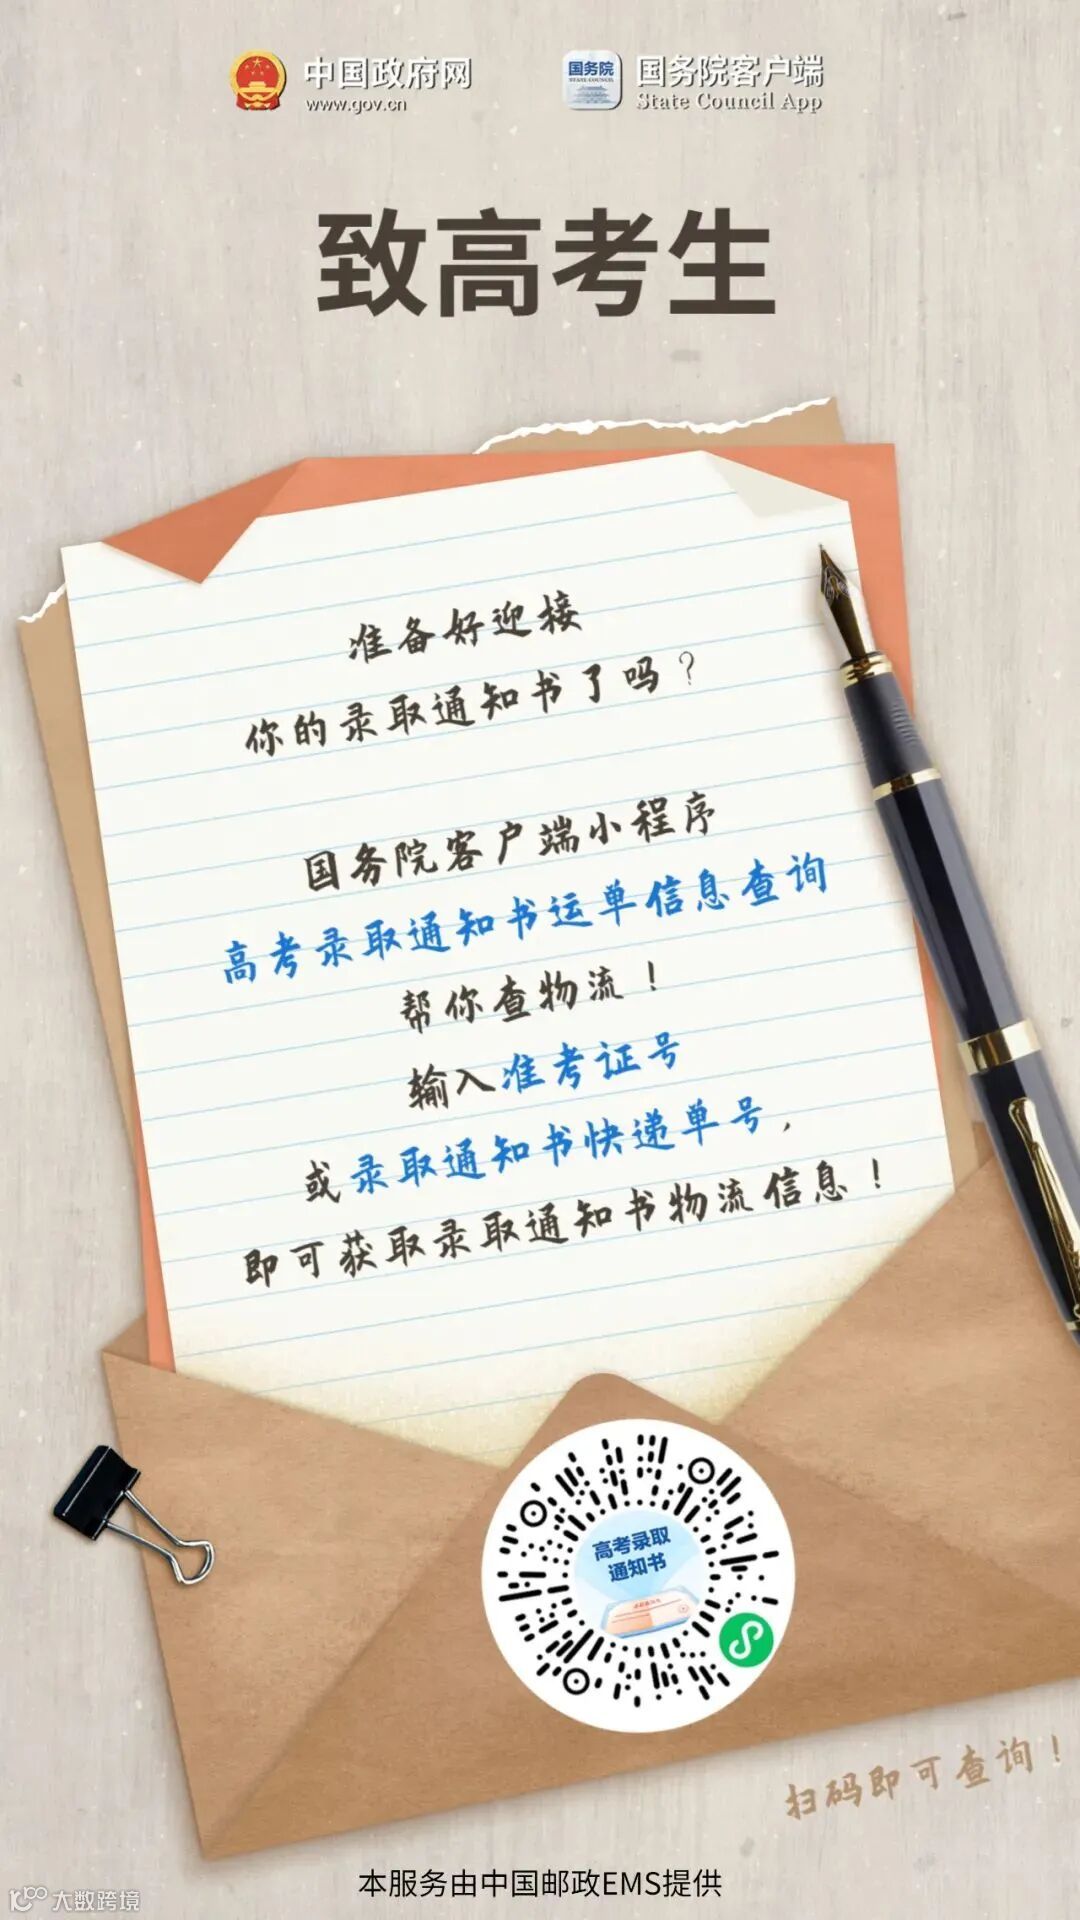 中国政府网
www.gov.cn
国务院
STATE COUNCIL
国务院客户端
State Council App
致高考生
准备好迎接
你的录取通知书了吗？
国务院客户端小程序
高考录取通知书运单信息查询
帮你查物流！
输入准考证号
或录取通知书快递单号，
即可获取录取通知书物流信息！
高考录取
通知书
扫码即可查询！
本服务由中国邮政EMS提供
大数跨境